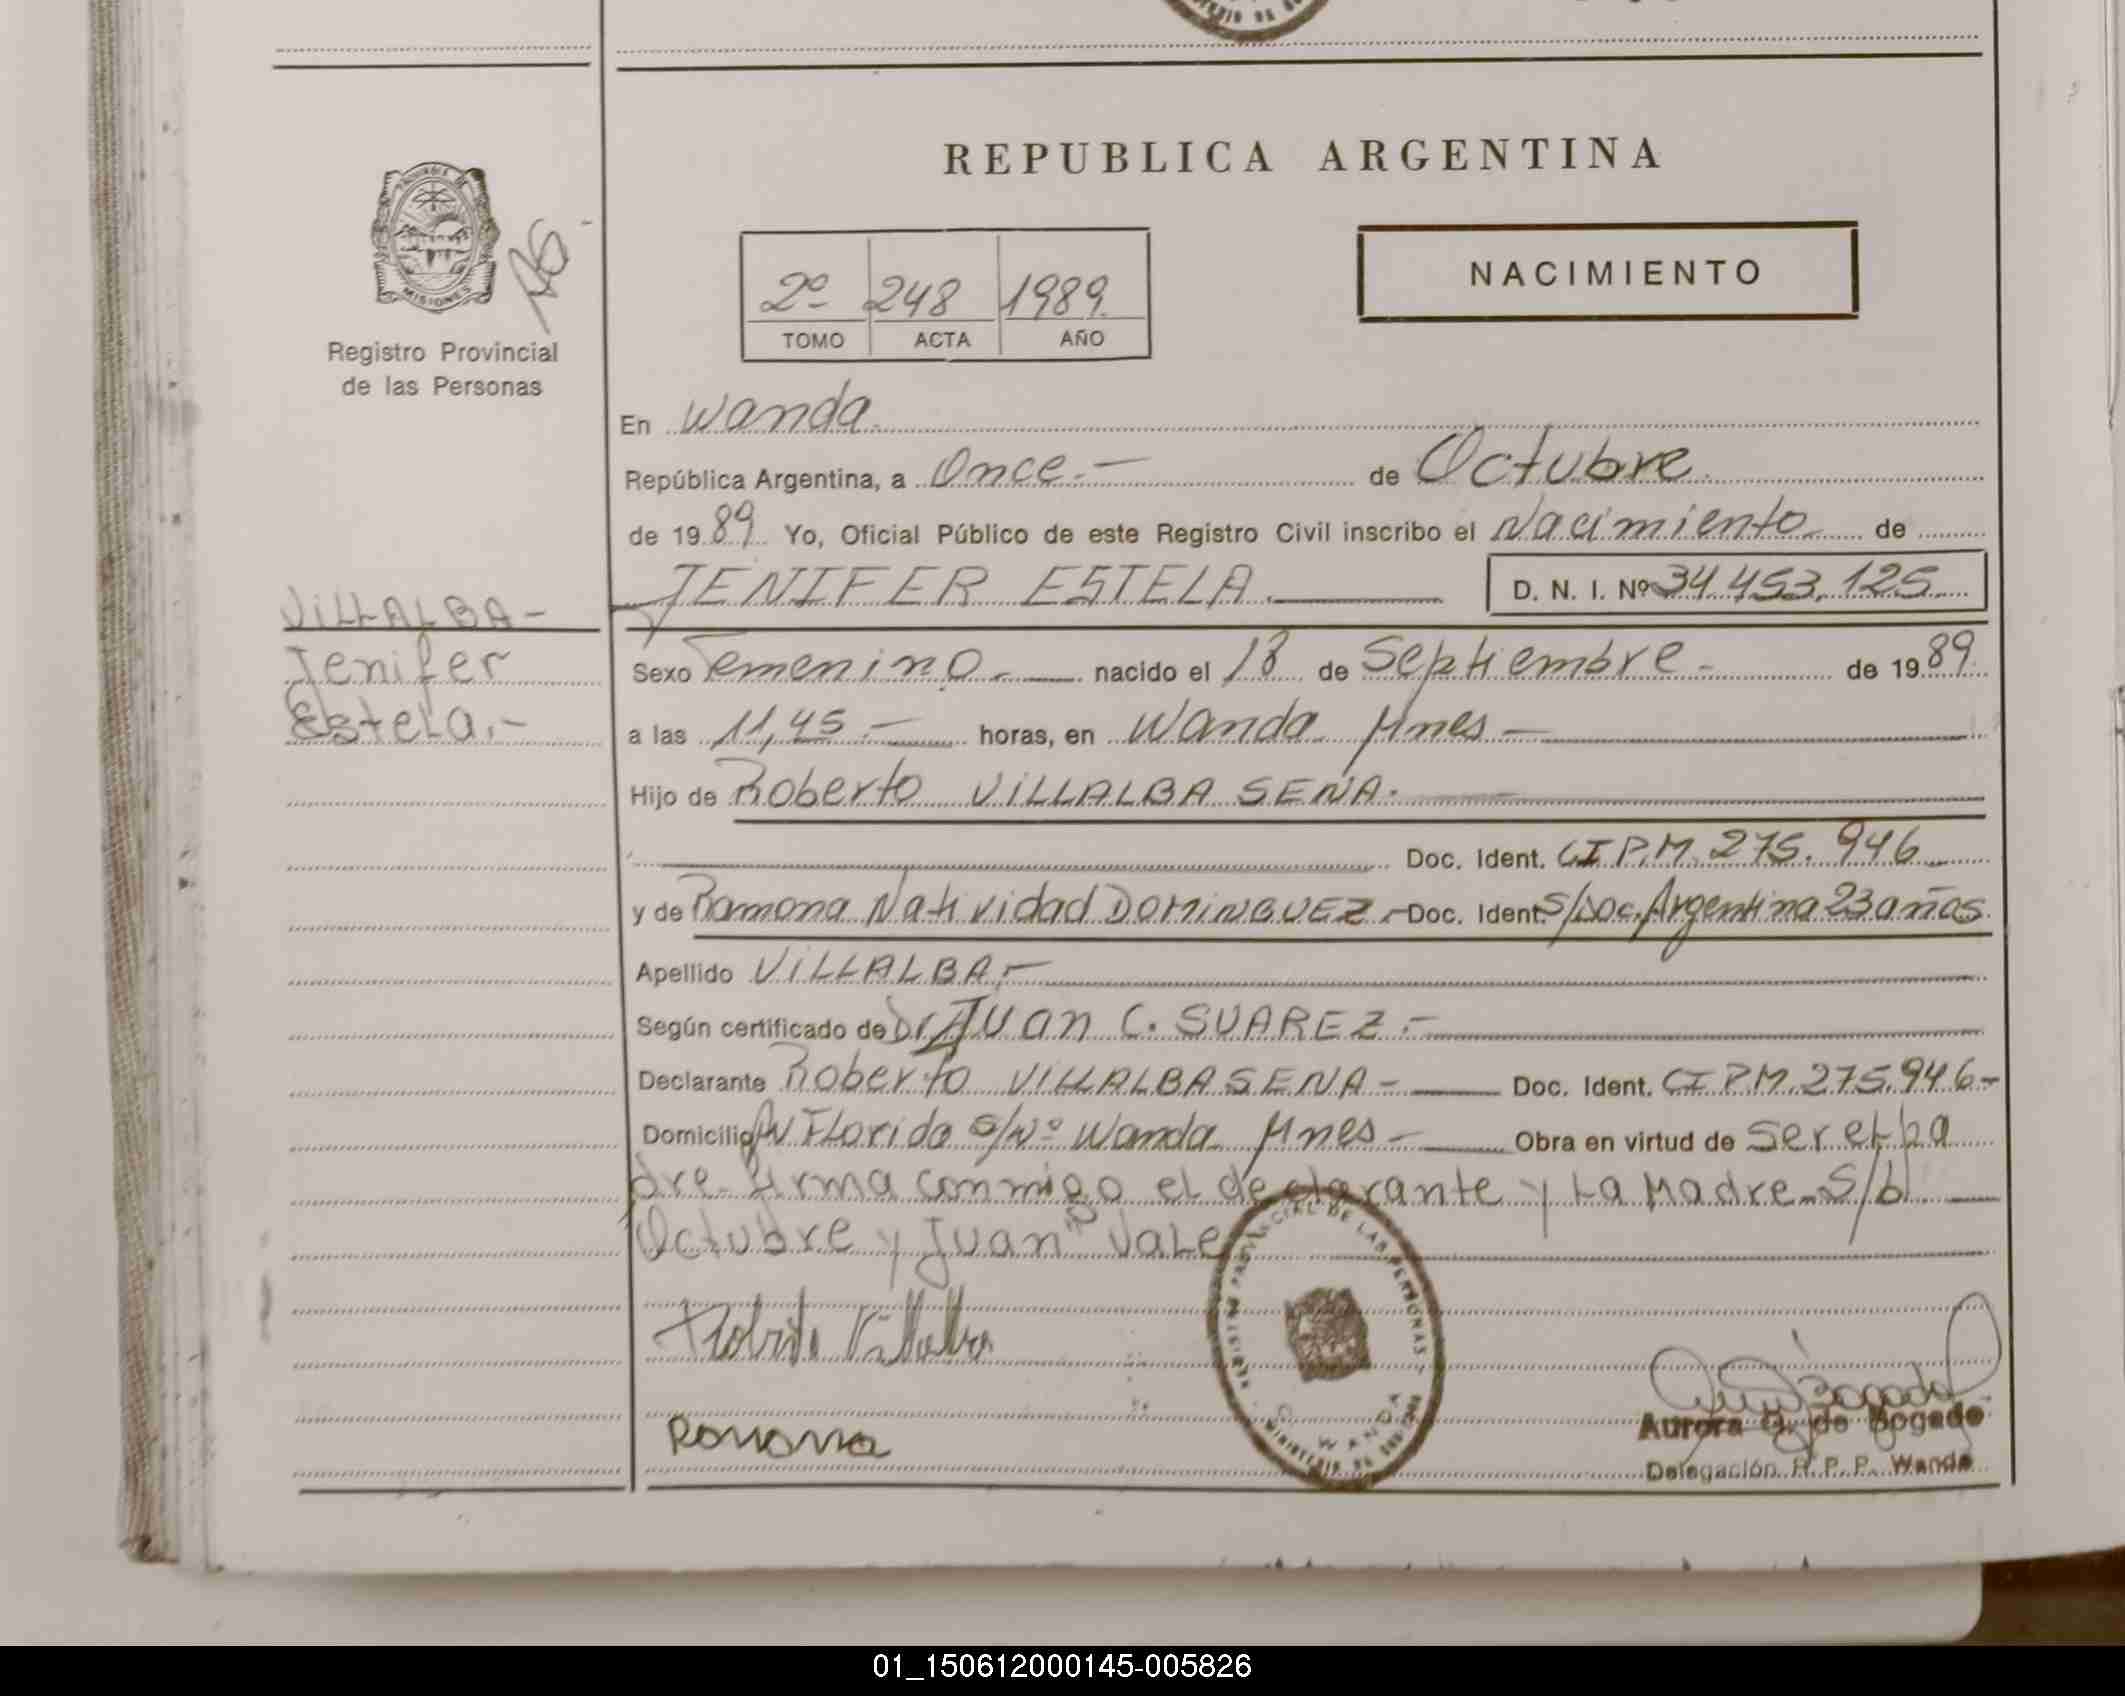 REPUBLICA ARGENTINA
PROVINCIA DE
MISIONES
Registro Provincial
de las Personas
NACIMIENTO
2º 248 1989
TOMO ACTA AÑO
En Wanda
República Argentina, a Once.- de Octubre
de 1989 Yo, Oficial Público de este Registro Civil inscribo el Nacimiento de
JENIFER ESTELA. D. N. I. Nº 34.453.125
VILLALBA-
Jenifer
Estela.-
Sexo Femenino.- nacido el 18 de Septiembre.- de 1989
a las 11,45.- horas, en Wanda Mnes-
Hijo de Roberto VILLALBA SENA.
Doc. Ident. CIPM. 275.946
y de Ramona Natividad DOMINGUEZ.- Doc. Ident. S/Doc. Argentina 23 años
Apellido VILLALBA.-
Según certificado de Dr Juan C. SUAREZ.-
Declarante Roberto VILLALBA SENA- Doc. Ident. CIPM. 275.946-
Domicilio Av Florida s/Nº Wanda Mnes- Obra en virtud de Ser el Pa
dre. firma conmigo el declarante y La Madre. S/b
Octubre y Juan Vale
Roberto Villalba
Ramona
PROVINCIAL DE LAS PERSONAS
MINISTERIO DE
WANDA
Aurora G. de Bogado
Delegación R. P. P. Wanda
01_150612000145-005826